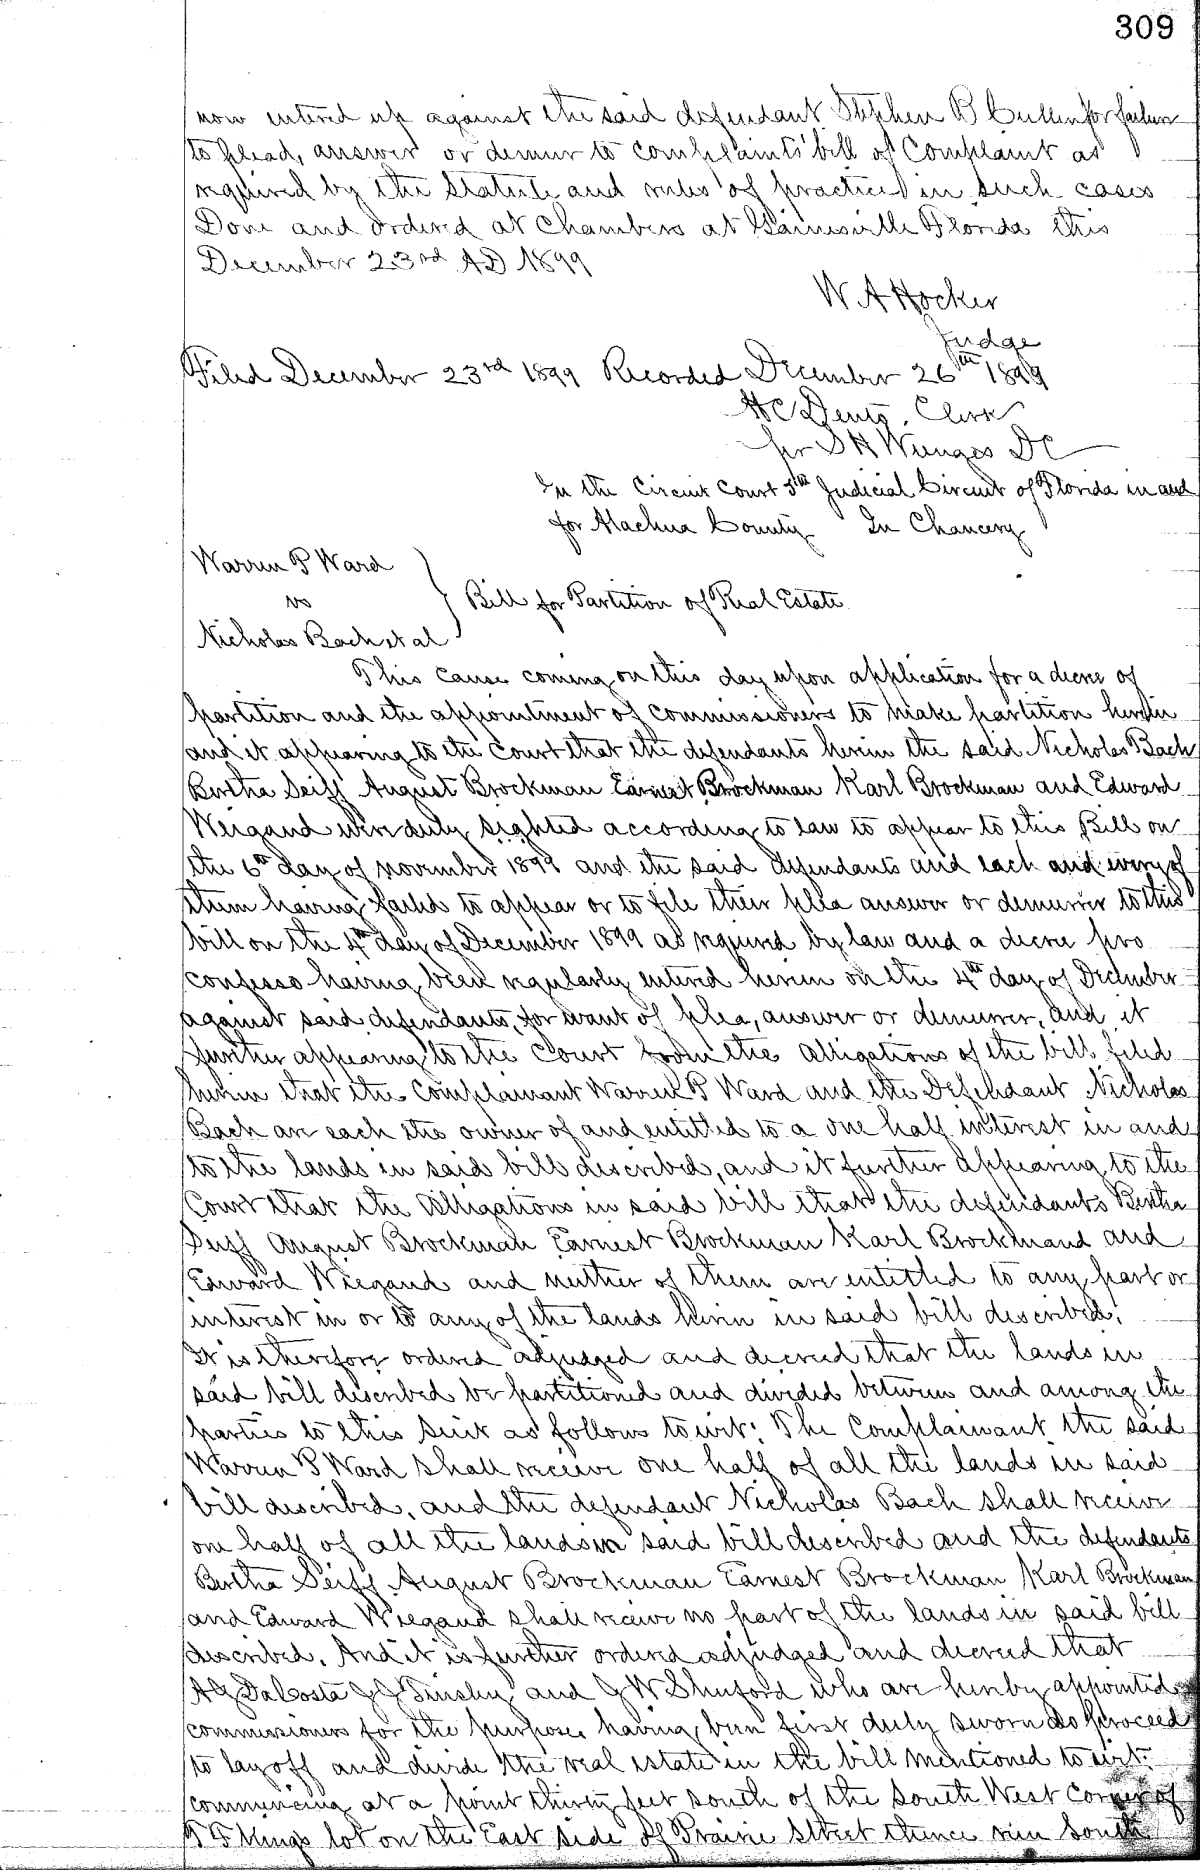 309
now entered up against the said defendant Stephen B Cullen for failure
to plead, answer or demur to complaints bill of Complaint as
required by the Statute and rules of practice in such cases
Done and ordered at Chambers at Gainesville Florida this
December 23rd AD 1899
W A Hocker
Judge
Filed December 23rd 1899 Recorded December 26th 1899
H C Denton, Clerk
per S H Wienges DC
In the Circuit Court 5th Judicial Circuit of Florida in and
for Alachua County In Chancery
Warren P Ward
vs
Bill for Partition of Real Estate
Nicholas Bach et al
This cause coming on this day upon application for a decree of
partition and the appointment of commissioners to make partition herein
and it appearing to the Court that the defendants herein the said Nicholas Bach
Bertha Seiff August Brockman Earnest Brockman Karl Brockman and Edward
Weigand were duly sighted according to law to appear to this Bill on
the 6th day of november 1899 and the said defendants and each and every of
them having failed to appear or to file their plea answer or demurrer to this
bill on the 4th day of December 1899 as required by law and a decree pro
confesso having been regularly entered herein on the 4th day of December
against said defendants, for want of plea, answer or demurrer, and it
further appearing to the Court from the allegations of the bill filed
herein that the Complainant Warren P Ward and the Defendant Nicholas
Bach are each the owner of and entitled to a one half interest in and
to the lands in said bill described, and it further appearing to the
Court that the allegations in said bill that the defendants Bertha
Seiff August Brockman Earnest Brockman Karl Brockmand and
Edward Wiegand and neither of them are entitled to any part or
interest in or to any of the lands herein in said bill described.
It is therefore ordered adjudged and decreed that the lands in
said bill described be partitioned and divided between and among the
parties to this suit as follows to wit: The Complainant the said
Warren P Ward shall receive one half of all the lands in said
bill described, and the defendant Nicholas Bach shall receive
one half of all the lands in said bill described and the defendants
Bertha Seiff August Brockman Earnest Brockman Karl Brockman
and Edward Wiegand shall receive no part of the lands in said bill
described. And it is further ordered adjudged and decreed that
A G DaCosta J J Tinsley and J W Shuford who are hereby appointed
commissioners for the purpose, having been first duly sworn do proceed
to lay off and divide the real estate in the bill mentioned to wit:
commencing at a point thirty feet south of the South West Corner of
Kings lot on the East side of Prairie Street thence run South